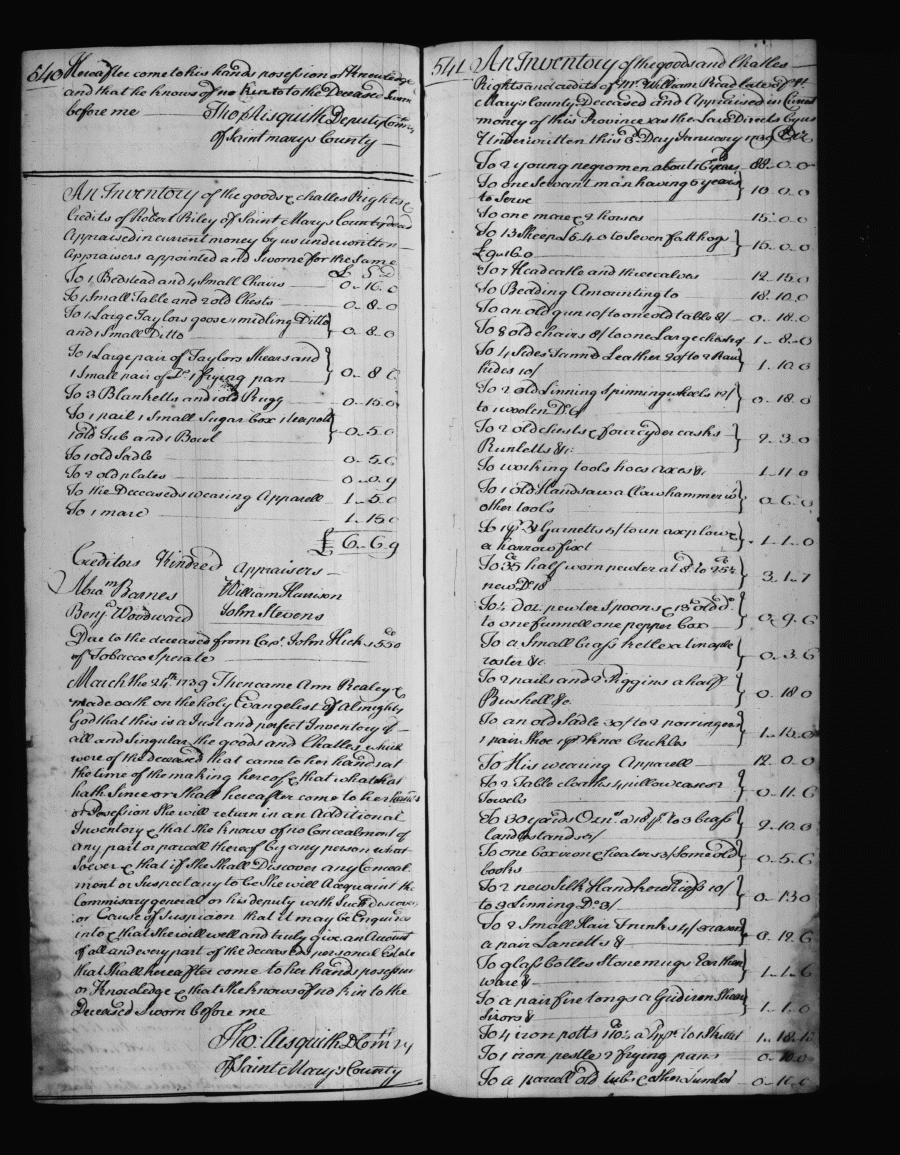 540 Hereafter come to his hands posession or Knowledge
and that he knows of no kin to to the Deceased Sworn
before me Tho: Aisquith Deputy Comry
of Saint marys County
An Inventory of the goods & challes Rights &
Credits of Robert Riley of Saint Marys County dead
Appraised in current money by us underwritten
Appraisers appointed and Sworne for the same
£ S d
To 1 Bedstead and 4 Small Chairs 0..16..0
To 1 Small Table and 2 old Chests 0..8..0
To 1 Large Taylors goose 1 midling Ditto
and 1 Small Ditto } 0..8..0
To 1 Large pair of Taylors Shears and
1 Small pair of Do 1 frying pan } 0..8..6
To 3 Blanketts and 1 old Rugg 0..15..0
To 1 pail 1 Small Sugar box 1 teapott
1 old Tub and 1 Bowl } 0..5..0
To 1 old Sadle 0..5..6
To 2 old plates 0..0..9
To the Deceaseds wearing Apparell 1..5..0
To 1 mare 1..15..0
£ 6..6..9
Creditors Kindred Appraisers
Abram Barnes William Harrison
Benja Woodward John Stevens
Due to the deceased from Capt. John Hicks 550
of Tobacco Sperate
March the 24th 1739 Then came Ann Realey &
made oath on the holy Evangelist of Almighty
God that this is a Just and perfect Inventory of
all and Singular the goods and Challes which
were of the deceased that came to her hands at
the time of the making hereof & that what hath
hath Since or Shall hereafter come to her hands
or Posession She will return in an Additional
Inventory & that She knows of no Concealment of
any part or parcell thereof by any person what
soever & that if She Shall Discover any Conceal
ment or Suspect any to be She will Acquaint the
Commisary general or his deputy with Such discovery
or Cause of Suspicion that it may be Enquired
into & that She will well and truly give an Account
of all and every part of the deceaseds personal Estate
that Shall hereafter come to her hands posession
or Knowledge & that She knows of no kin to the
Deceased Sworn before me
Tho: Aisquith D Comry
of Saint Marys County
541 An Inventory of the goods and Challes
Rights and credits of Mr. William Read late of St.
Marys County Deceased and Appraised in Current
money of this Province as the Law Directs by us
Underwritten this 8th Day January 1739
To 2 young negro men about 16 years 88..0..0
To one Servant man having 6 years
to Serve } 10..0..0
To one mare & 2 horses 15..0..0
To 13 Sheep £5..4..0 to Seven fatt hogs
£9..16..0 } 15..0..0
To 7 Head catle and three calves 12..15..0
To Beading Amounting to 18..10..0
To an old gun 10/ to one old table 8/ 0..18..0
To 8 old chairs 8/ to one Large chest 1..8..0
To 4 Sides Tannd Leather 20/ to 2 Raw
hides 10/ } 1..10..0
To 2 old Linning Spinning wheels 12/
to 1 woolen Do 6/ } 0..18..0
To 2 old chests & four cyder casks
Runletts &c } 2..3..0
To working tools hoes axes &c 1..11..0
To 1 old Handsaw a Claw hammer
other tools } 0..6..0
To 1 pr Garnetts 5/ to un ax plow &
a harrow fixt } 1..1..0
To 35 half worn pewter at 8d to 25½
new Do 18 } 3..1..7
To ½ doz. pewter Spoons & 18 old do
to one funnell one pepper box } 0..9..6
To a Small brass kettle a tin aple
roster &c } 0..3..6
To 2 nails and 2 Piggins a half
Bushell &c } 0..18..0
To an old Sadle 30/ to 2 porringers
1 pair Shoe 1 pr knee buckles } 1..15..0
To His wearing Apparell 12..0..0
To 2 Table cloaths 4 pillowcases 2
Towels } 0..11..6
To 30 yards Ozns a 18 p. to 3 brass
Candlestands 5/ } 2..10..0
To one box iron & heaters 3/ Some old
books } 0..5..6
To 2 new Silk Handkercheifs 10/
to 3 Linning Do 3/ } 0..13..0
To 2 Small Hair Trunks 4/ 2 razors
a pair Lancetts &c } 0..12..6
To glass botles Stone mugs Earthen
ware &c } 1..1..6
To a pair fire tongs a Gridiron Shears
Sizors &c } 1..1..0
To 4 iron potts a Spit to 1 Skillet 1..18..
To 1 iron pestle 2 frying pans 0..10..0
To a parcell old tubs & other Lumber 0..10..0